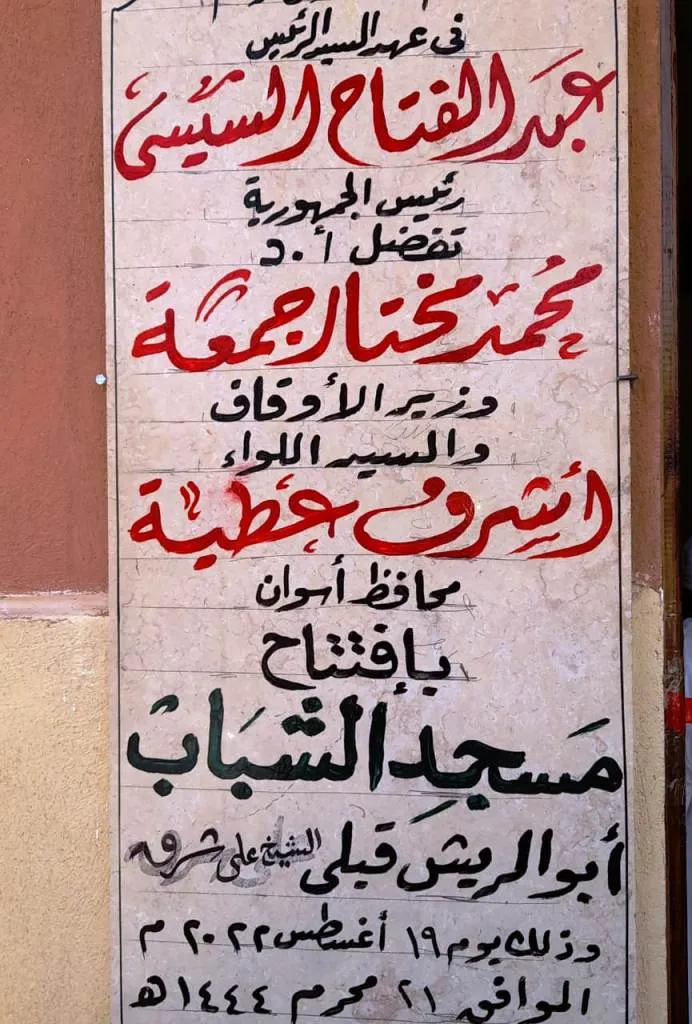 فى عهد السيد الرئيس
عبد الفتاح السيسى
رئيس الجمهورية
تفضل أ.د
محمد مختار جمعة
وزير الأوقاف
والسيد اللواء
أشرف عطية
محافظ أسوان
بإفتتاح
مسجد الشباب
أبو الريش قبلى الشيخ على شرف
وذلك يوم ١٩ أغسطس ٢٠٢٢ م
الموافق ٢١ محرم ١٤٤٤ هـ